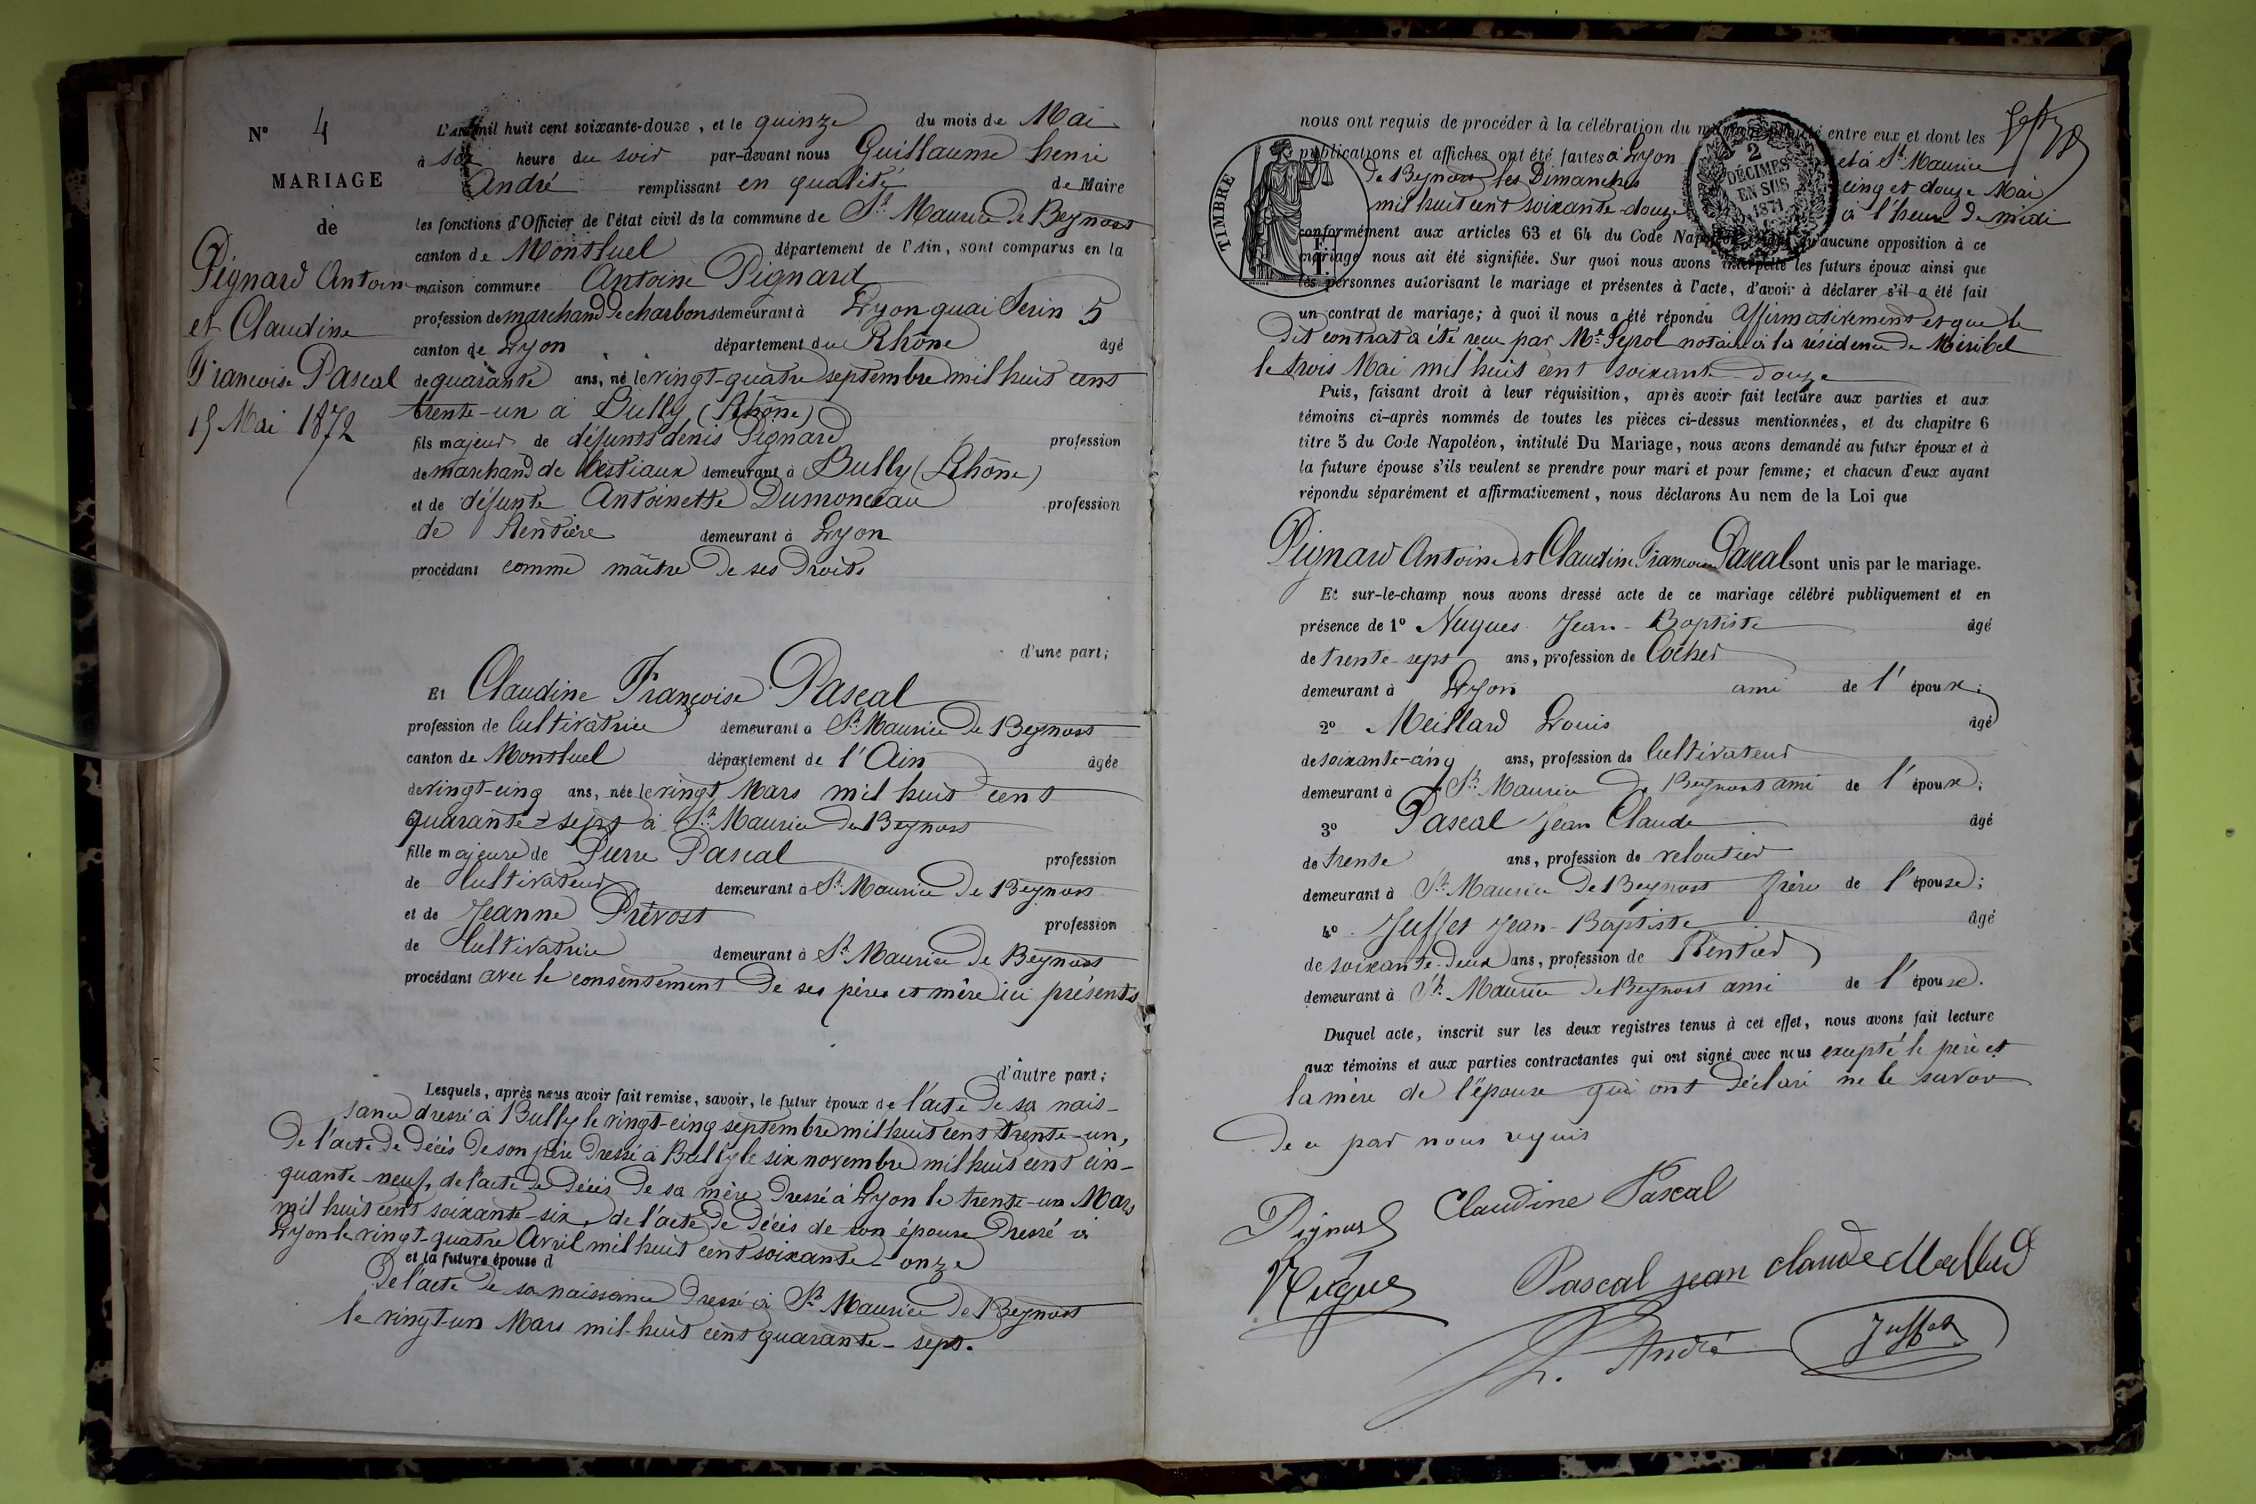 N° 4
MARIAGE
de
Pignard Antoine
et Claudine
Francoise Pascal
15 Mai 1872
L'an mil huit cent soixante-douze, et le quinze du mois de Mai
à six heure du soir par-devant nous Guillaume henri
André remplissant en qualité de Maire
les fonctions d'Officier de l'état civil de la commune de St Maurice de Beynost
canton de Montluel département de l'Ain, sont comparus en la
maison commune Antoine Pignard
profession de marchand de charbons demeurant à Lyon quai Serin 5
canton de Lyon département du Rhône âgé
de quarante ans, né le vingt-quatre septembre mil huit cent
trente-un à Bully (Rhône)
fils majeur de défunt denis Pignard profession
de marchand de bestiaux demeurant à Bully (Rhône)
et de défunte Antoinette Dumonceau profession
de Rentière demeurant à Lyon
procédant comme maître de ses droits
d'une part;
Et Claudine Françoise Pascal
profession de Cultivatrice demeurant à St Maurice de Beynost
canton de Montluel département de l'Ain âgée
de vingt-cinq ans, née le vingt Mars mil huit cent
quarante-sept à St Maurice de Beynost
fille majeure de Pierre Pascal profession
de Cultivateur demeurant à St Maurice de Beynost
et de Jeanne Prévost profession
de Cultivatrice demeurant à St Maurice de Beynost
procédant avec le consentement de ses père et mère ici présents
d'autre part;
Lesquels, après nous avoir fait remise, savoir, le futur époux de l'acte de sa nais-
sance dressé à Bully le vingt-cinq septembre mil huit cent trente-un,
de l'acte de décès de son père dressé à Bully le six novembre mil huit cent cin-
quante-neuf, de l'acte de décès de sa mère dressé à Lyon le trente-un Mars
mil huit cent soixante-six, de l'acte de décès de son épouse dressé à
Lyon le vingt-quatre Avril mil huit cent soixante-onze
et la future épouse d
De l'acte de sa naissance dressé à St Maurice de Beynost
le vingt-un Mars mil-huit cent quarante-sept.
nous ont requis de procéder à la célébration du mariage projeté entre eux et dont les
publications et affiches ont été faites à Lyon et à St Maurice
de Beynost les Dimanches cinq et douze Mai
mil huit cent soixante-douze à l'heure de midi
conformément aux articles 63 et 64 du Code Napoléon, sans qu'aucune opposition à ce
mariage nous ait été signifiée. Sur quoi nous avons interpellé les futurs époux ainsi que
les personnes autorisant le mariage et présentes à l'acte, d'avoir à déclarer s'il a été fait
un contrat de mariage; à quoi il nous a été répondu affirmativement et que le
dit contrat a été reçu par Me Peyrol notaire à la résidence de Miribel
le trois Mai mil huit cent soixante douze
TIMBRE
2
DÉCIMES
EN SUS
1871
Puis, faisant droit à leur réquisition, après avoir fait lecture aux parties et aux
témoins ci-après nommés de toutes les pièces ci-dessus mentionnées, et du chapitre 6
titre 5 du Code Napoléon, intitulé Du Mariage, nous avons demandé au futur époux et à
la future épouse s'ils veulent se prendre pour mari et pour femme; et chacun d'eux ayant
répondu séparément et affirmativement, nous déclarons Au nom de la Loi que
Pignard Antoine et Claudine Francoise Pascal sont unis par le mariage.
Et sur-le-champ nous avons dressé acte de ce mariage célébré publiquement et en
présence de 1° Nugues Jean-Baptiste âgé
de trente-sept ans, profession de Cocher
demeurant à Lyon ami de l'époux;
2° Meillard Louis âgé
de soixante-cinq ans, profession de Cultivateur
demeurant à St Maurice de Beynost ami de l'époux;
3° Pascal Jean Claude âgé
de trente ans, profession de veloutier
demeurant à St Maurice de Beynost frère de l'épouse;
4° Juffet Jean-Baptiste âgé
de soixante-deux ans, profession de Rentier
demeurant à St Maurice de Beynost ami de l'épouse.
Duquel acte, inscrit sur les deux registres tenus à cet effet, nous avons fait lecture
aux témoins et aux parties contractantes qui ont signé avec nous excepté le père et
la mère de l'épouse qui ont déclaré ne le savoir
de ce par nous requis
Pignard Claudine Pascal
Nugues Pascal jean claude Meillard
h. André Juffet